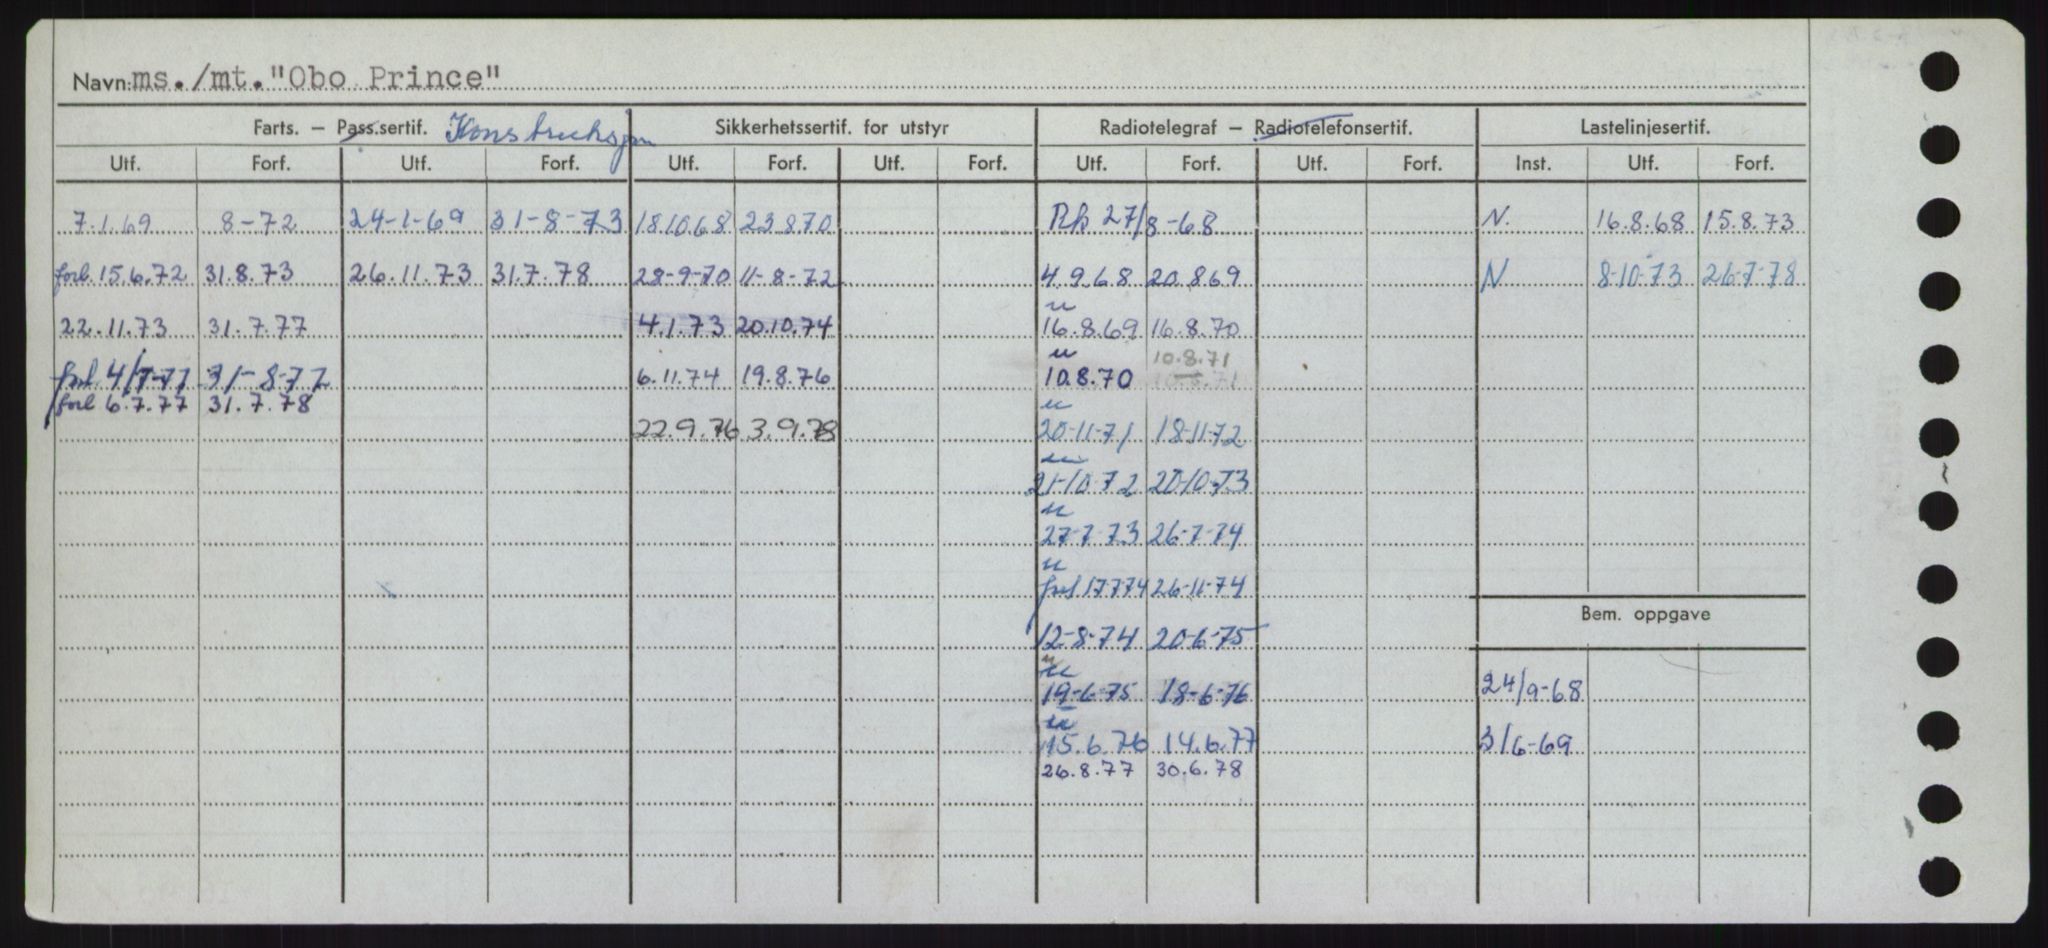 Navn: ms./mt. "Obo Prince"
Farts. — Pass.sertif. Konstruksjon Sikkerhetssertif. for utstyr Radiotelegraf — Radiotelefonsertif. Lastelinjesertif.
Utf. Forf. Utf. Forf. Utf. Forf. Utf. Forf. Utf. Forf. Utf. Forf. Inst. Utf. Forf.
7.1.69 8-72 24-1-69 31-8-73 18.10.68 23.8.70 Rh 27/8-68 N. 16.8.68 15.8.73
forl. 15.6.72 31.8.73 26.11.73 31.7.78 28-9-70 11-8-72 4.9.68 20.8.69 N 8-10-73 26-7-78
u
22.11.73 31.7.77 4.1.73 20.10.74 16.8.69 16.8.70
u 10.8.71
forl. 4/7-77 31-8-77 6.11.74 19.8.76 10.8.70
forl 6.7.77 31.7.78 u
22.9.76 3.9.78 20-11-71 18-11-72
u
21-10-72 20-10-73
u
27-7-73 26-7-74
u
forl 17.7.74 26-11-74
Bem. oppgave
12-8-74 20-6-75
u
19-6-75 18-6-76 24/9-68
u
15.6.76 14.6.77 3/6-69
26.8.77 30.6.78